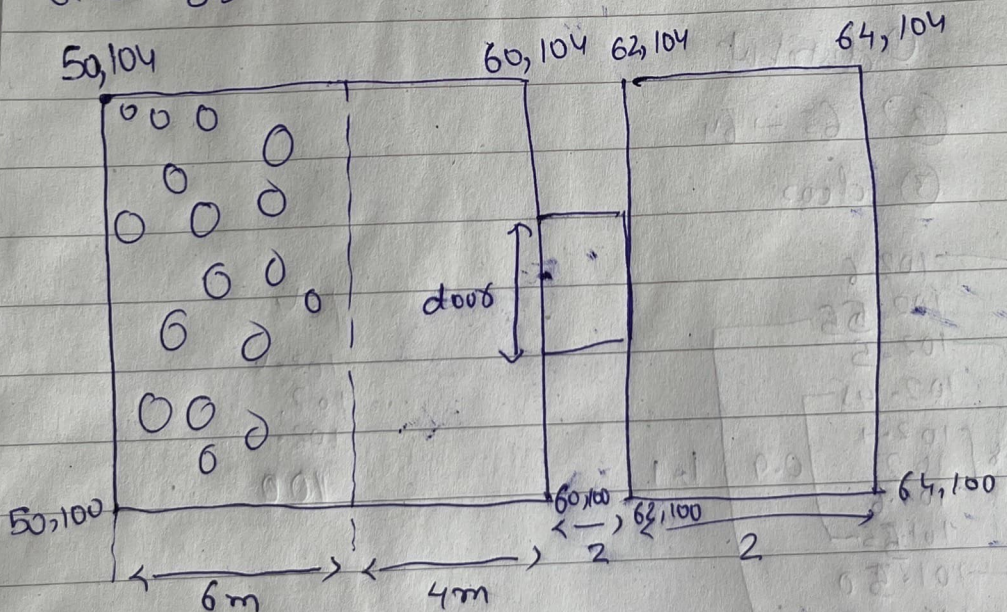 50,104
60,104
62,104
64,104
door
50,100
60,100
62,100
64,100
6m
4m
2
2